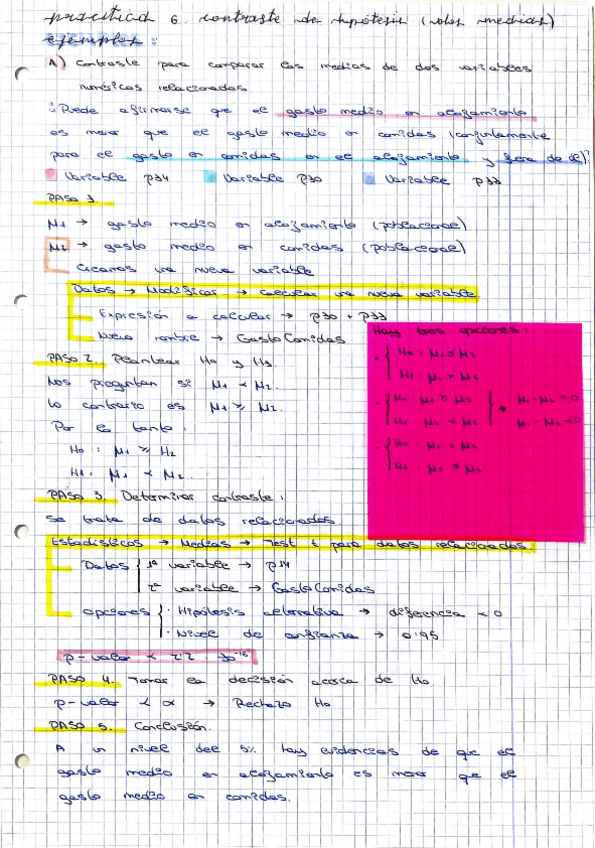 práctica 6. contraste de hipótesis (dos medias)
ejemplos:
A) Contraste para comparar las medias de dos variables
numéricas relacionadas
¿Puede afirmarse que el gasto medio en alojamiento
es menor que el gasto medio en comidas (conjuntamente
para el gasto en comidas en el alojamiento y fuera de él)?
Variable p14 Variable p30 Variable p33
PASO 1.
M1 → gasto medio en alojamiento (poblacional)
M2 → gasto medio en comidas (poblacional)
Creamos una nueva variable
Datos → Modificar → calcular una nueva variable
Expresión a calcular → p30 + p33
Nuevo nombre → GastoComidas
PASO 2. Plantear H0 y H1.
Nos preguntan si M1 < M2.
Lo contrario es M1 ≥ M2.
Por lo tanto:
H0: M1 ≥ M2
H1: M1 < M2.
Hay tres opciones:
H0: M1 ≥ M2
H1: M1 < M2
M1 - M2 ≥ 0
M1 - M2 < 0
PASO 3. Determinar contraste:
Se trata de datos relacionados
Estadísticos → Medias → Test t para datos relacionados.
Datos { 1ª variable → p14
2ª variable → GastoComidas
opciones { · Hipótesis alternativa → diferencia < 0
· Nivel de confianza → 0'95
p-valor < 2'2 · 10^-16
PASO 4. Tomar la decisión acerca de H0.
p-valor < α → Rechazo H0
PASO 5. Conclusión.
A un nivel del 5% hay evidencias de que el
gasto medio en alojamiento es menor que el
gasto medio en comidas.